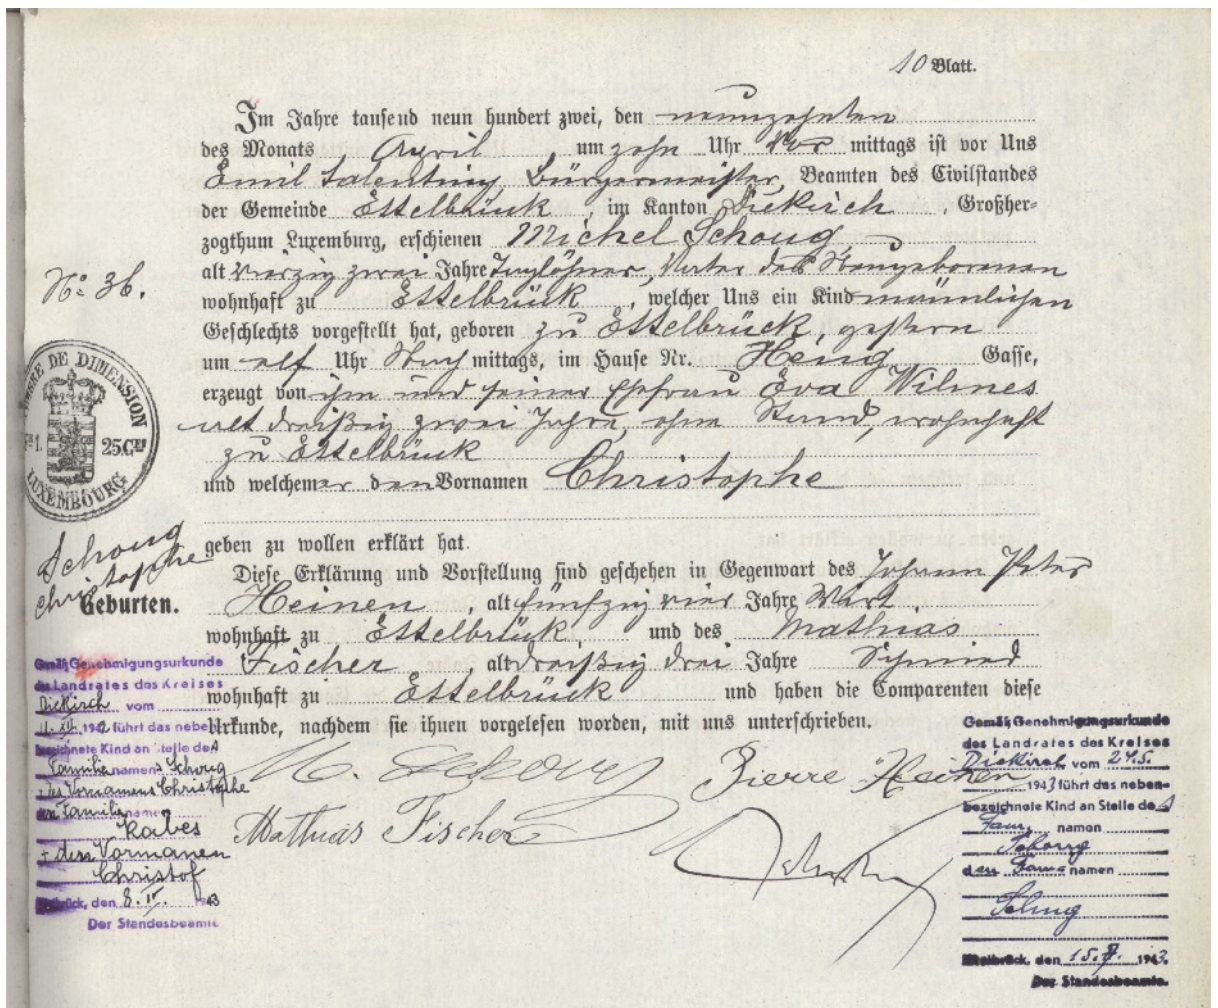 10 Blatt.
Im Jahre tausend neun hundert zwei, den neunzehnten
des Monats April um zehn Uhr Vor mittags ist vor Uns
Emil Salentiny, Bürgermeister, Beamten des Civilstandes
der Gemeinde Ettelbrück, im Kanton Diekirch, Großher-
zogthum Luxemburg, erschienen Michel Schoug,
alt vierzig zwei Jahre Taglöhner, Vater des Neugeborenen
wohnhaft zu Ettelbrück, welcher Uns ein Kind männlichen
Geschlechts vorgestellt hat, geboren zu Ettelbrück, gestern
um elf Uhr Nach mittags, im Hause Nr. Gasse,
erzeugt von ihm und seiner Ehefrau Eva Wilmes
alt dreißig zwei Jahre, ohne Stand, wohnhaft
zu Ettelbrück
und welchem er den Vornamen Christophe
geben zu wollen erklärt hat.
Diese Erklärung und Vorstellung sind geschehen in Gegenwart des Johann Peter
Heinen, alt fünfzig vier Jahre Wirt,
wohnhaft zu Ettelbrück, und des Mathias
Fischer alt dreißig drei Jahre Schmied
wohnhaft zu Ettelbrück und haben die Comparenten diese
Urkunde, nachdem sie ihnen vorgelesen worden, mit uns unterschrieben.
M. Schoug Pierre Heinen
Mathias Fischer
No 36.
TIMBRE DE DIMENSION
1. 25 Ces
LUXEMBOURG
Schoug
Christophe
Geburten.
Gemäß Genehmigungsurkunde
des Landrates des Kreises
Diekirch vom
11. XII. 1942 führt das neben-
bezeichnete Kind an Stelle des
Familien namens Schoug
+ des Vornamens Christophe
den Familien namen
Kabes
+ den Vornamen
Christof
den 8. II. 1943
Der Standesbeamte
Gemäß Genehmigungsurkunde
des Landrates des Kreises
Diekirch vom 24.5.
1943 führt das neben-
bezeichnete Kind an Stelle des
Fam. namen
Schoug
den Fam. namen
Schug
Ettelbrück, den 15. 7. 1943.
Der Standesbeamte.